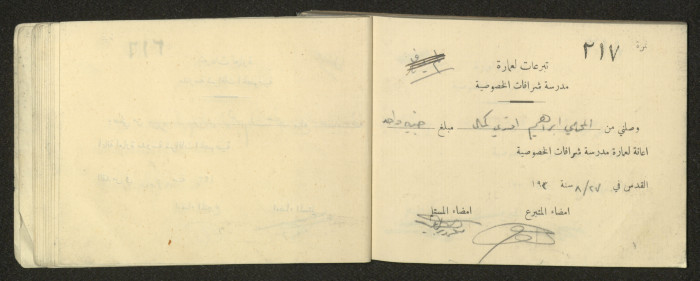 نمرة ٢١٧
تبرعات لعمارة
مدرسة شرافات الخصوصية
وصلني من المحامي ابراهيم افندي كمال مبلغ جنيه واحد
اعانة لعمارة مدرسة شرافات الخصوصية
القدس في ٨/٢٧ سنة ١٩٣
امضاء المتبرع امضاء المستلم